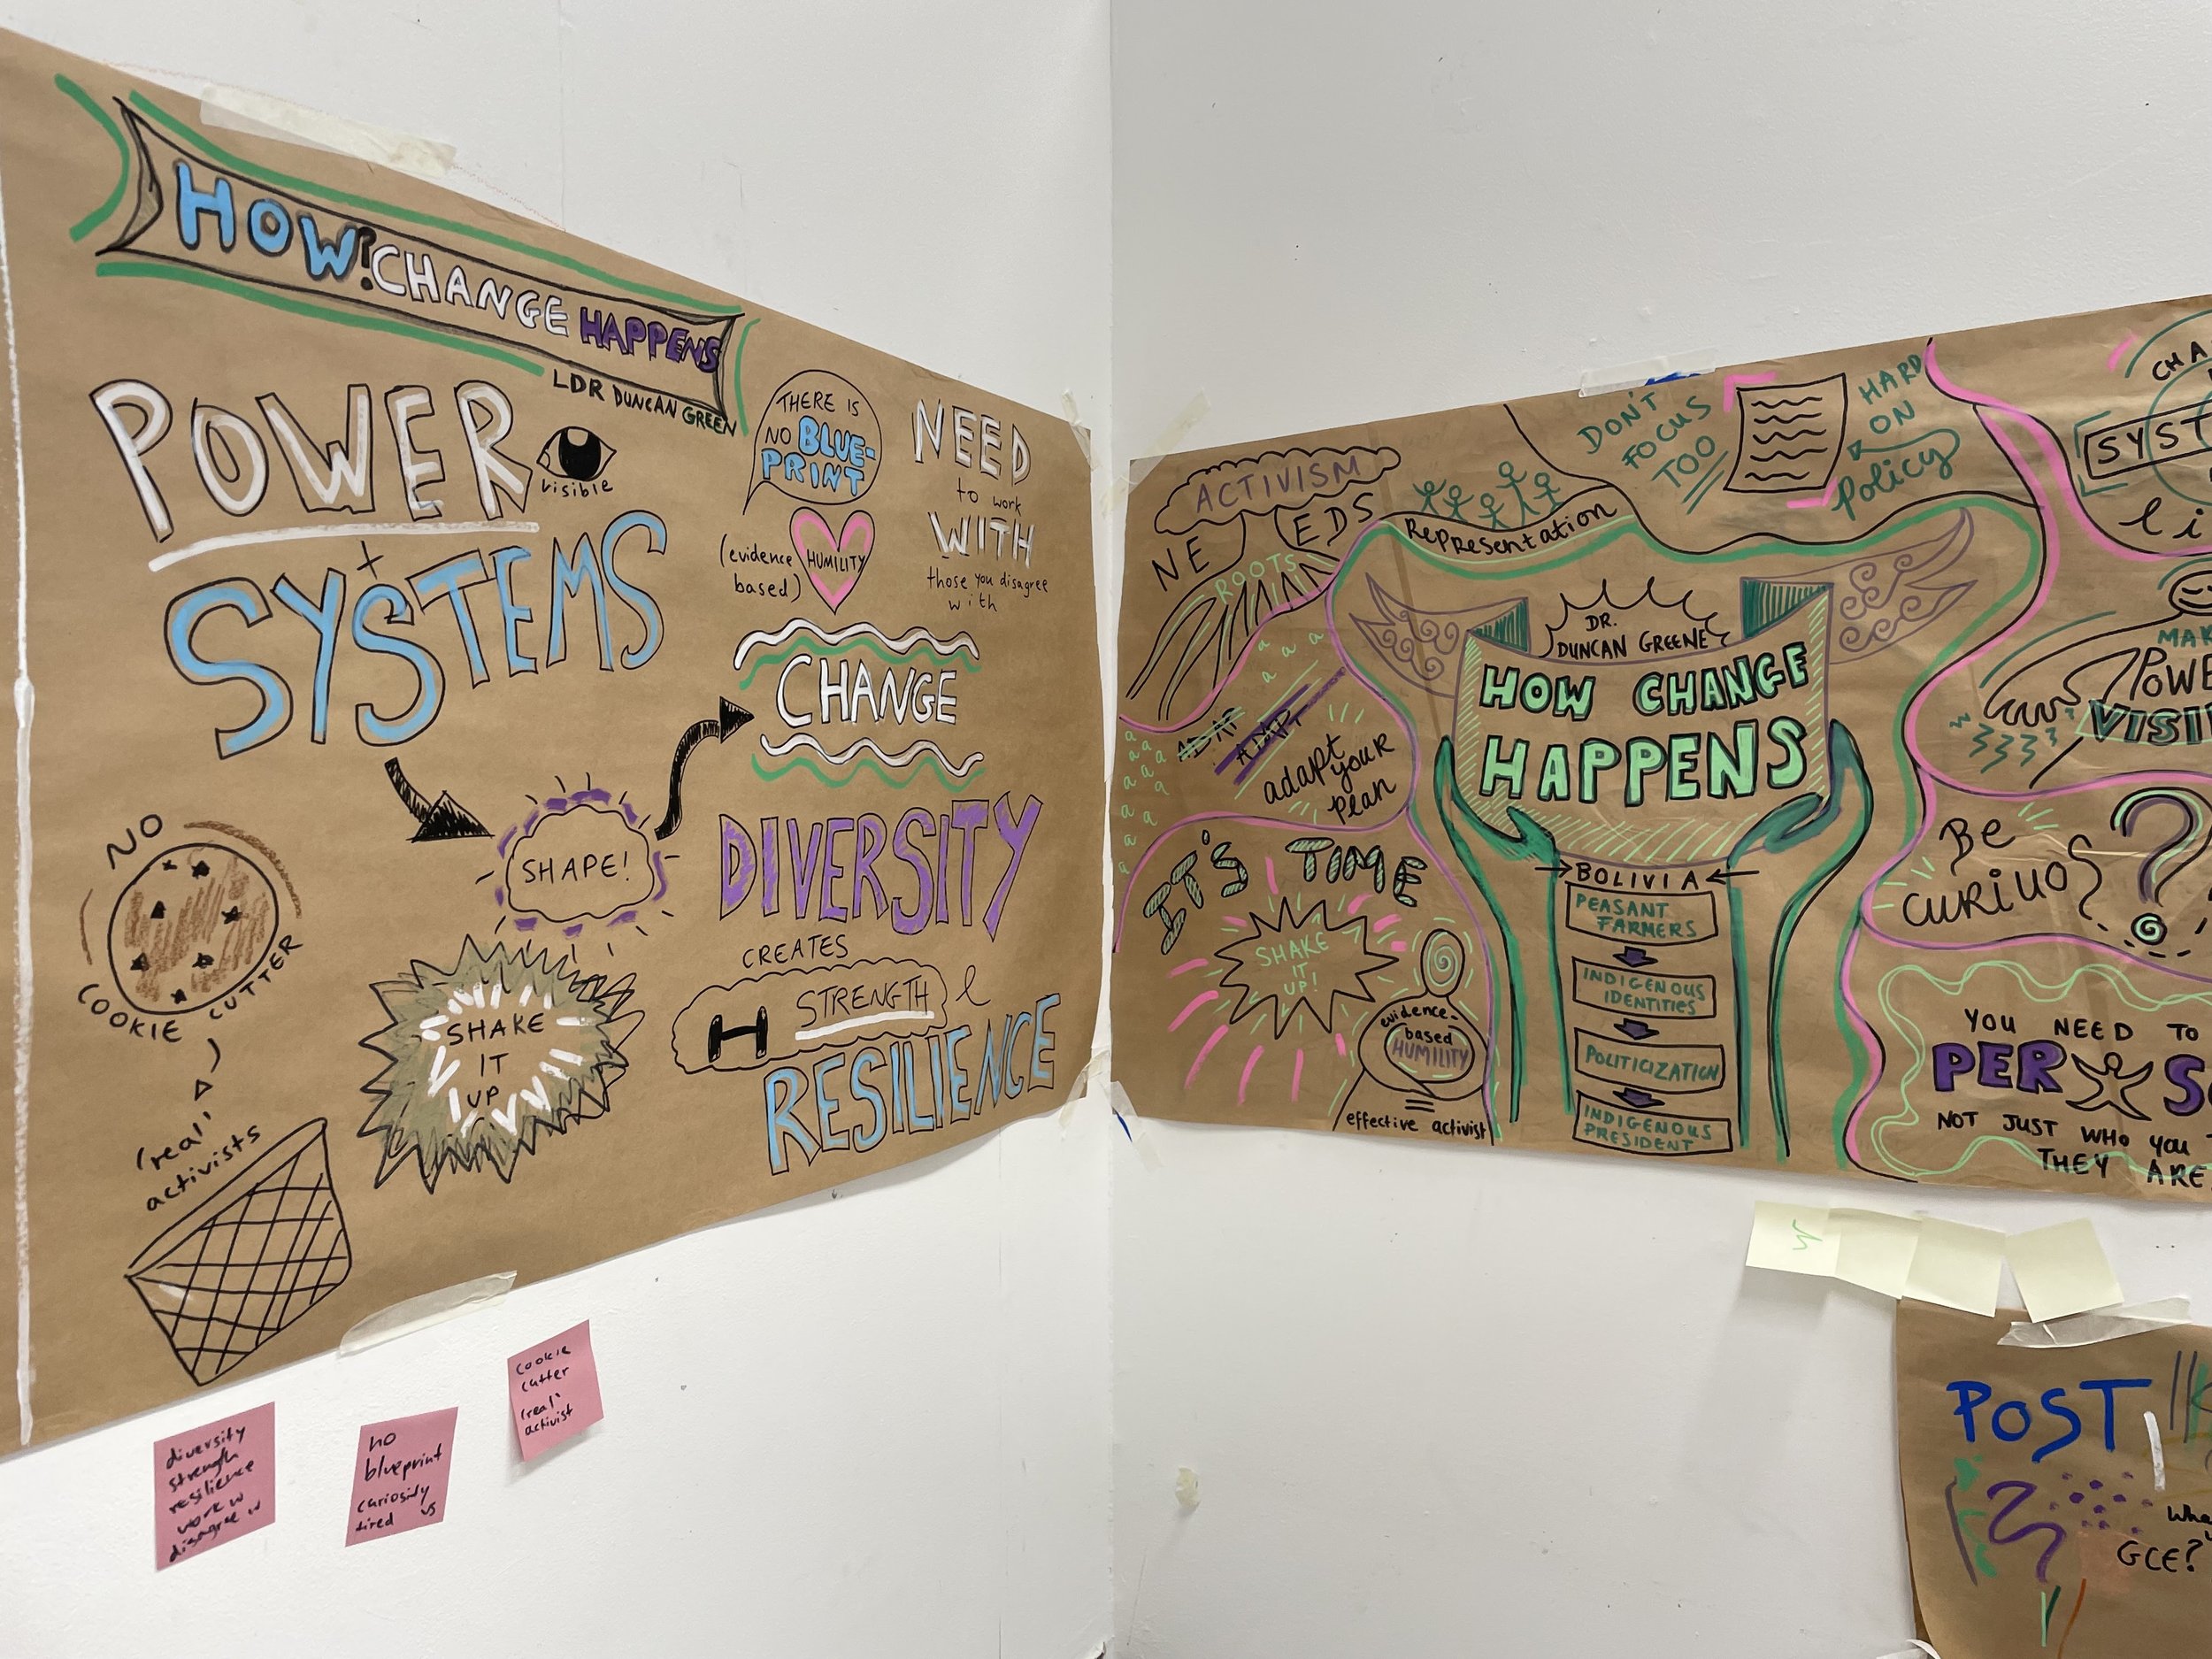 HOW? CHANGE HAPPENS
LDR DUNCAN GREEN
POWER
visible
+
SYSTEMS
THERE IS
NO BLUE-
PRINT
(evidence
based)
HUMILITY
NEED
to work
WITH
those you disagree
with
CHANGE
SHAPE!
NO
COOKIE CUTTER
'real'
activists
SHAKE
IT
UP
DIVERSITY
CREATES
STRENGTH &
RESILIENCE
diversity
strength
resilience
work w
disagree w
no
blueprint
curiosity
vs
tired
cookie
cutter
'real'
activist
ACTIVISM
NEEDS
ROOTS
Representation
DON'T
FOCUS
TOO
HARD
ON
policy
ADAPT
adapt your
plan
IT'S TIME
SHAKE
IT
UP!
evidence-
based
HUMILITY
=
effective activist
DR.
DUNCAN GREENE
HOW CHANGE
HAPPENS
BOLIVIA
PEASANT
FARMERS
INDIGENOUS
IDENTITIES
POLITICIZATION
INDIGENOUS
PRESIDENT
CHA
SYST
li
MAK
POWE
VISI
Be
curiuos?
YOU NEED TO
PER S
NOT JUST WHO YOU
THEY ARE
POST
Wha
GCE?